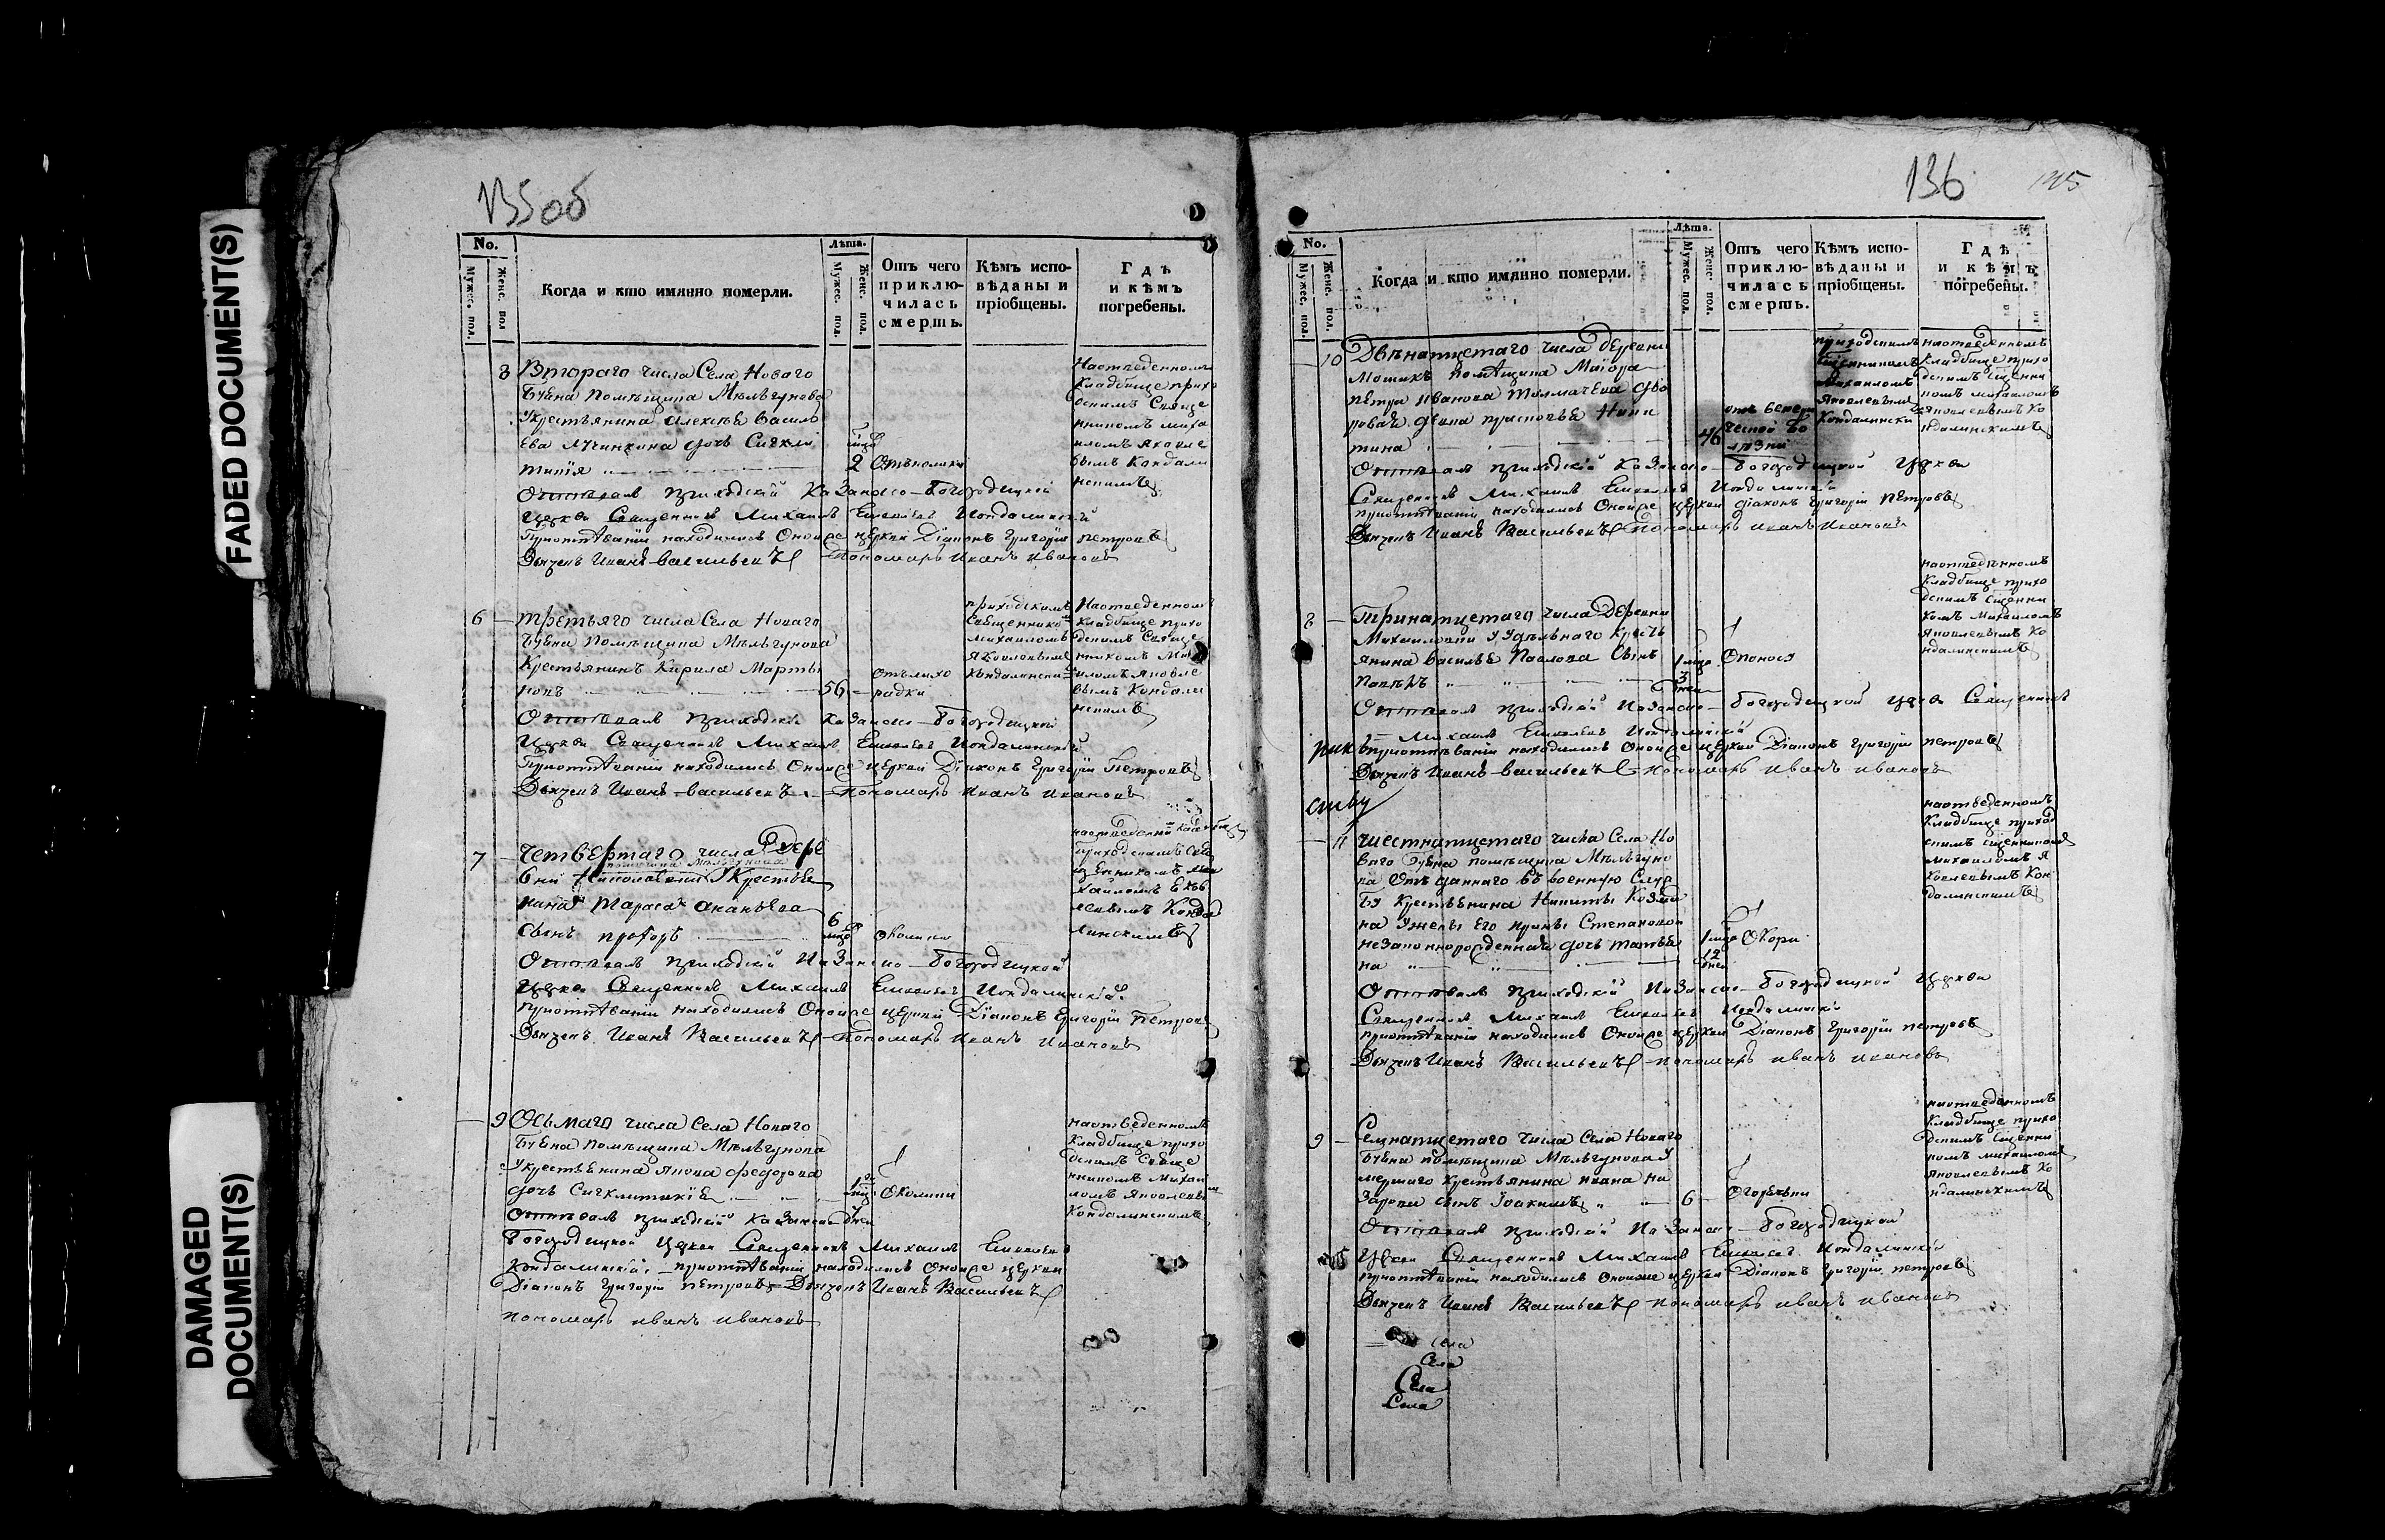 FADED DOCUMENT(S)
DAMAGED
DOCUMENT(S)
135об
No.
Мужес. пол.
Женс. пол
Когда и кто имянно померли.
Лѣта.
Мужес. пол.
Женс. пол.
Отъ чего
приклю-
чилась
смерть.
Кѣмъ испо-
вѣданы и
пріобщены.
Гдѣ
и кѣмъ
погребены.
8 Втораго числа Села Новаго
Бұвна Помѣщика Мѣльгунова
Укрестьянина Алексѣя Василь
ева дочь Сигкли
тикія
2
Наотведенномъ
Кладбище прихо
дскимъ Свяще
нникомъ Миха
иломъ Яковле
вымъ Кондали
нскимъ
Отпѣвалъ приходскій Казанско-Богородицкой
Церкви Священникъ Михаилъ Кондалинскій
Приотпѣваніи находились Оной же церкви Діаконъ Григорій Петровъ
Дьячекъ Иванъ Васильевъ Пономарь Иванъ Ивановъ
6 Третьяго числа Села Новаго
Бұвна Помѣщика Мѣльгунова
Крестьянинъ Кирила Марты
новъ 56
Отълихо
радки
приходскимъ
Священником
Михаиломъ
Яковлевымъ
Кондалински
Наотведенномъ
Кладбище прихо
дскимъ Свяще
нникомъ Миха
иломъ Яковле
вымъ Кондали
нскимъ
Отпѣвалъ приходскій Казанско-Богородицкой
Церкви Священникъ Михаилъ Кондалинскій
Приотпѣваніи находились Оной же церкви Діаконъ Григорій Петровъ
Дьячекъ Иванъ Васильевъ Пономарь Иванъ Ивановъ
7 Четвертаго числа Дере
помещика Мельгунова
вни Николаевки Укрестья
нина Тараса Ананьева
Сынъ 6
наотведенно кладбище
Приходскимъ Свя
щенникомъ Ми
хаиломъ Яков
левымъ Конда
линскимъ
Отпѣвалъ приходскій Казанско-Богородицкой
Церкви Священникъ Михаилъ Кондалинскій
Приотпѣваніи находились Оной же церкви Діаконъ Григорій Петровъ
Дьячекъ Иванъ Васильевъ Пономарь Иванъ Ивановъ
9 Осьмаго числа Села Новаго
Бұвна Помѣщика Мѣльгунова
Укрестьянина Якова Федорова
дочь Сигклитикіе
наотведенномъ
Кладбище прихо
дскимъ Свяще
нникомъ Михаи
ломъ Яковлевым
Кондалинскимъ
Отпѣвалъ приходскій Казанско
Богородицкой Церкви Священникъ Михаилъ
Кондалинскій приотпѣваніи находились Оной же церкви
Діаконъ Григорій Петровъ Дьячекъ Иванъ Васильевъ
пономарь Иванъ Ивановъ
136
No.
Мужес. пол.
Женс. пол.
Когда и кто имянно померли.
Лѣта.
Мужес. пол.
Женс. пол.
Отъ чего
приклю-
чилась
смерть.
Кѣмъ испо-
вѣданы и
пріобщены.
Гдѣ
и кѣмъ
погребены.
10 Двѣнатцетаго числа деревни
помѣщика Маіора
Петра Иванова Толмачева дво
ровая девка
46
отъ венери
ческой бо
лѣзни
приходскимъ
Священникомъ
Михаиломъ
Яковлевымъ
Кондалински
наотведенномъ
Кладбище прихо
дскимъ Священни
комъ Михаиломъ
Яковлевымъ Ко
ндалинскимъ
Отпѣвалъ приходскій Казанско-Богородицкой Церкви
Священникъ Михаилъ Кондалинскій
приотпѣваніи находились Оной же церкви діаконъ Григорій Петровъ
Дьячекъ Иванъ Васильевъ Пономарь Иванъ Ивановъ
8 Тринатцетаго числа Деревни
Михаиловки Уудѣльнаго Кресть
янина Василья Павлова Сынъ
Павелъ 1 3
Опоноса
наотведенномъ
Кладбище прихо
дскимъ Священни
комъ Михаиломъ
Яковлевымъ Ко
ндалинскимъ
Отпѣвалъ приходскій Казанско-Богородицкой Церкви Священникъ
Михаилъ Кондалинскій
приотпѣваніи находились Оной же церкви Діаконъ Григорій Петровъ
Дьячекъ Иванъ Васильевъ пономарь Иванъ Ивановъ
11 Шестнатцетаго числа Села Но
ваго Бұвна помѣщика Мѣльгуно
ва Отъданнаго въ военную Служ
бу Крестьянина Никиты Козми
на Ужены Его Ирины Степановой
незаконнорожденная дочь Татья
на 1 12
Окори
наотведенномъ
Кладбище приход
скимъ Священникомъ
Михаиломъ Я
ковлевымъ Кон
далинскимъ
Отпѣвалъ приходскій Казанско-Богородицкой Церкви
Священникъ Михаилъ Кондалинскій
приотпѣваніи находились Оной же церкви Діаконъ Григорій Петровъ
Дьячекъ Иванъ Васильевъ пономарь Иванъ Ивановъ
9 Семнатцетаго числа Села Новаго
Бұвна помѣщика Мѣльгунова У
мершаго крестьянина Ивана На
зарова сынъ Іоакимъ 6
Огорячки
наотведенномъ
Кладбище прихо
дскимъ Священни
комъ Михаиломъ
Яковлевымъ Ко
ндалинскимъ
Отпѣвалъ приходскій Казанско-Богородицкой
Церкви Священникъ Михаилъ Кондалинскій
приотпѣваніи находились Оной же церкви Діаконъ Григорій Петровъ
Дьячекъ Иванъ Васильевъ пономарь Иванъ Ивановъ
Села
Села
Села
Села